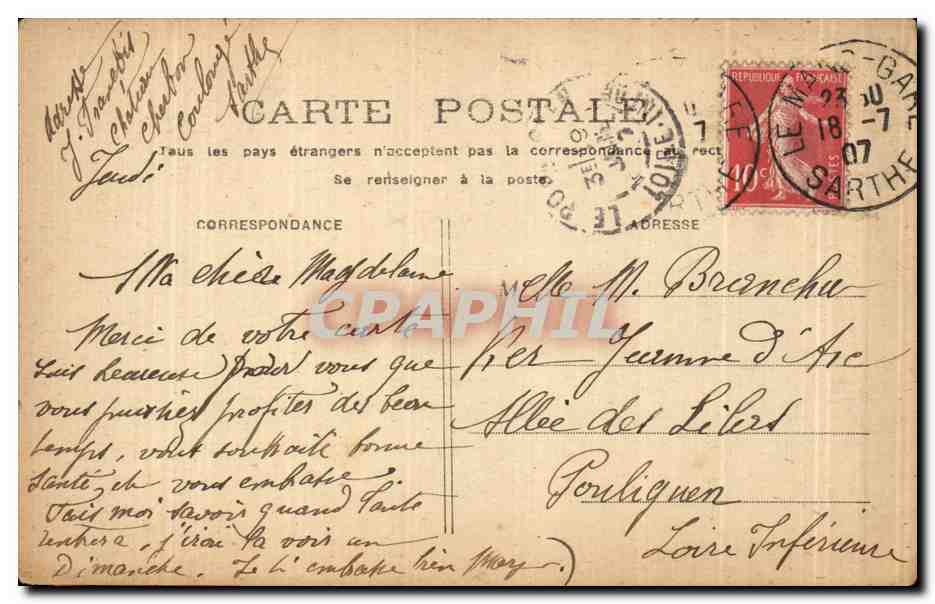 Adresse
J.
Château
Coulongé
Sarthe
Jeudi
CARTE POSTALE
Tous les pays étrangers n'acceptent pas la correspondance au recto
Se renseigner à la poste
REPUBLIQUE FRANÇAISE
10c POSTES
LE MANS-GARE
23 30
18 -7
07
SARTHE
CORRESPONDANCE
ADRESSE
Ma chère Magdelaine
Merci de votre carte
suis heureuse pour vous que
vous puissiez profiter du beau
temps, vous souhaite bonne
santé, et vous embrasse
Fais moi savoir quand tante
rentrera, j'irai la voir un
Dimanche. Je t'embrasse bien
Melle M. Branchu
Ker Jeanne d'Arc
Allée des Lilas
Pouliguen
Loire Inférieure
CPAPHIL